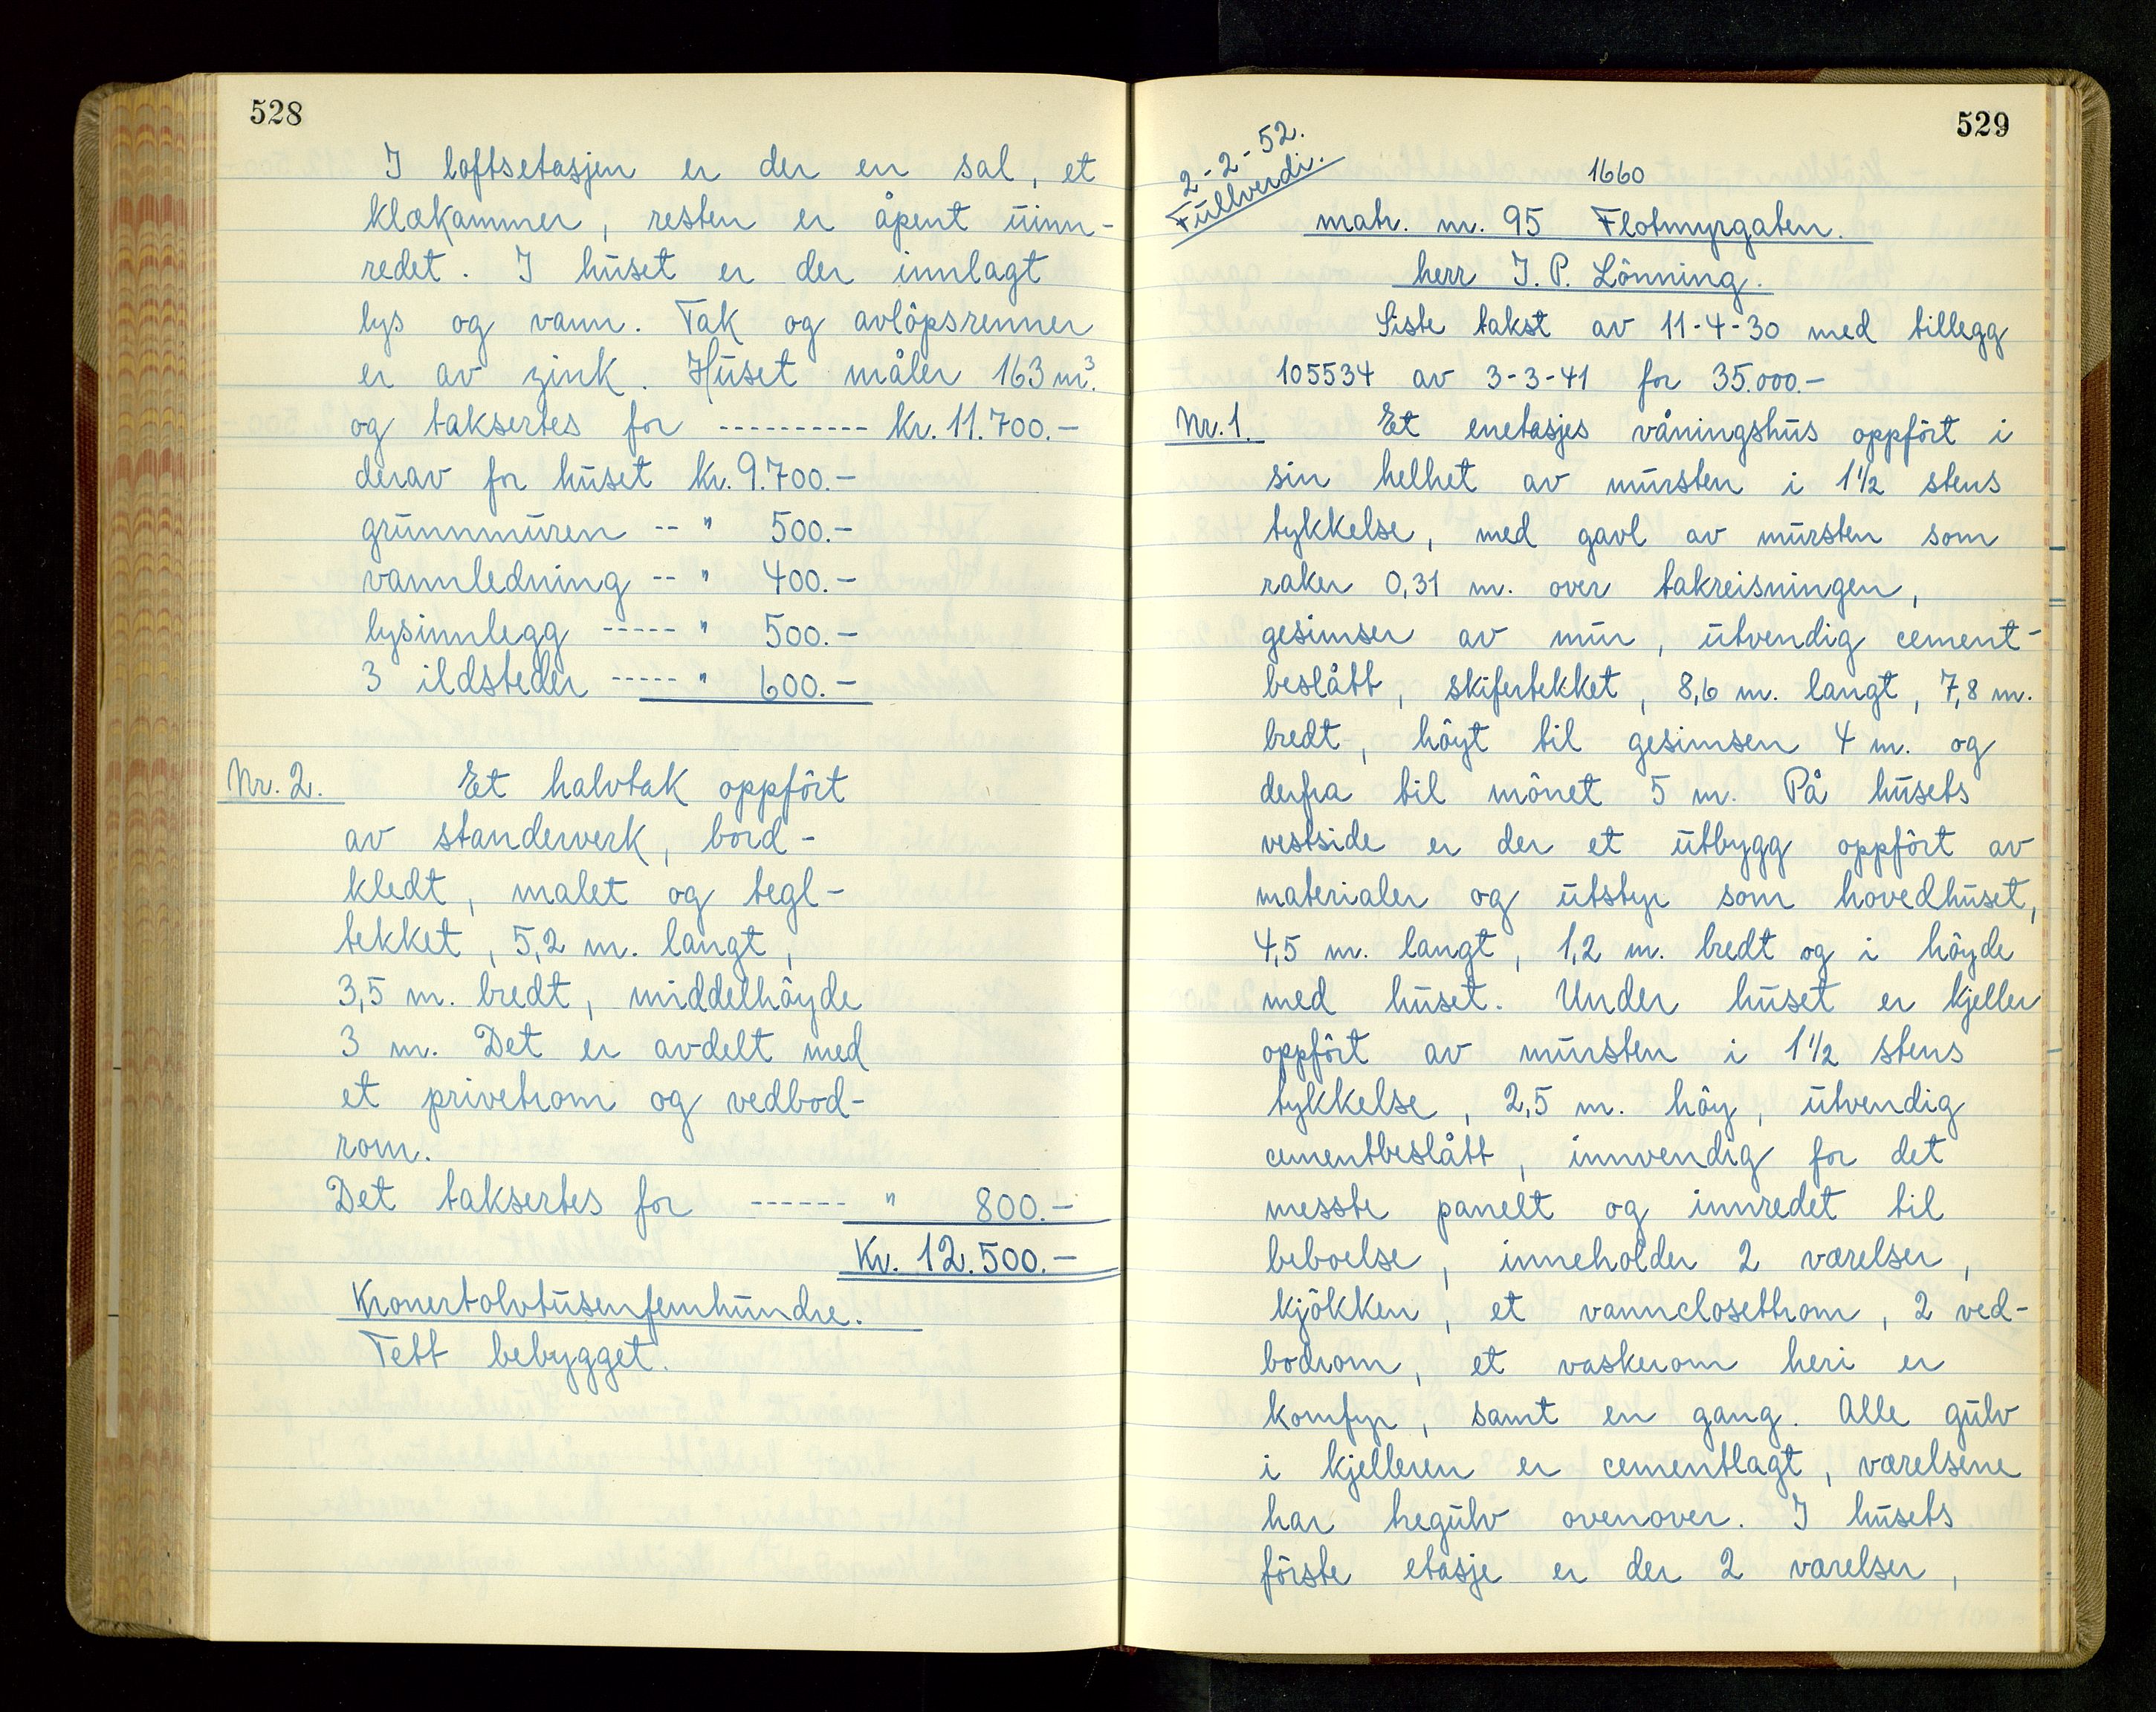 528
I loftsetasjen er der en sal, et
klækammer, resten er åpent uinn-
redet. I huset er der innlagt
lys og vann. Tak og avlöpsrenner
er av zink. Huset måler 163 m³.
og taksertes for ---------- Kr. 11.700.-
derav for huset Kr. 9.700.-
grunnmuren -- " 500.-
vannledning -- " 400.-
lysinnlegg ----- " 500.-
3 ildsteder ----- " 600.-
Nr. 2. Et halvtak oppfört
av standerverk, bord-
kledt, malet og tegl-
tekket, 5,2 m. langt,
3,5 m. bredt, middelhöyde
3 m. Det er avdelt med
et privetrom og vedbod-
rom.
Det taksertes for ------ " 800.-
Kr. 12.500.-
Kronertolvtusenfemhundre.
Tett bebygget.
529
2-2-52.
Fullverdi.
1660
matr. nr. 95 Flotmyrgaten.
herr J. P. Lönning.
Siste takst av 11-4-30 med tillegg
105534 av 3-3-41 for 35.000.-
Nr. 1. Et enetasjes våningshus oppfört i
sin helhet av mursten i 1½ stens
tykkelse, med gavl av mursten som
raker 0,31 m. over takreisningen,
gesimser av mur, utvendig cement-
beslått, skifertekket, 8,6 m. langt, 7,8 m.
bredt, höyt til gesimsen 4 m. og
derfra til mönet 5 m. På husets
vestside er der et utbygg oppfört av
materialer og utstyr som hovedhuset,
4,5 m. langt, 1,2 m. bredt og i höyde
med huset. Under huset er kjeller
oppfört av mursten i 1½ stens
tykkelse, 2,5 m. höy, utvendig
cementbeslått, innvendig for det
messte panelt og innredet til
beboelse, inneholder 2 værelser,
kjökken, et vannclosettrom, 2 ved-
bodrom, et vaskerom heri er
komfyr, samt en gang. Alle gulv
i kjelleren er cementlagt, værelsene
har tregulv ovenover. I husets
förste etasje er der 2 værelser,